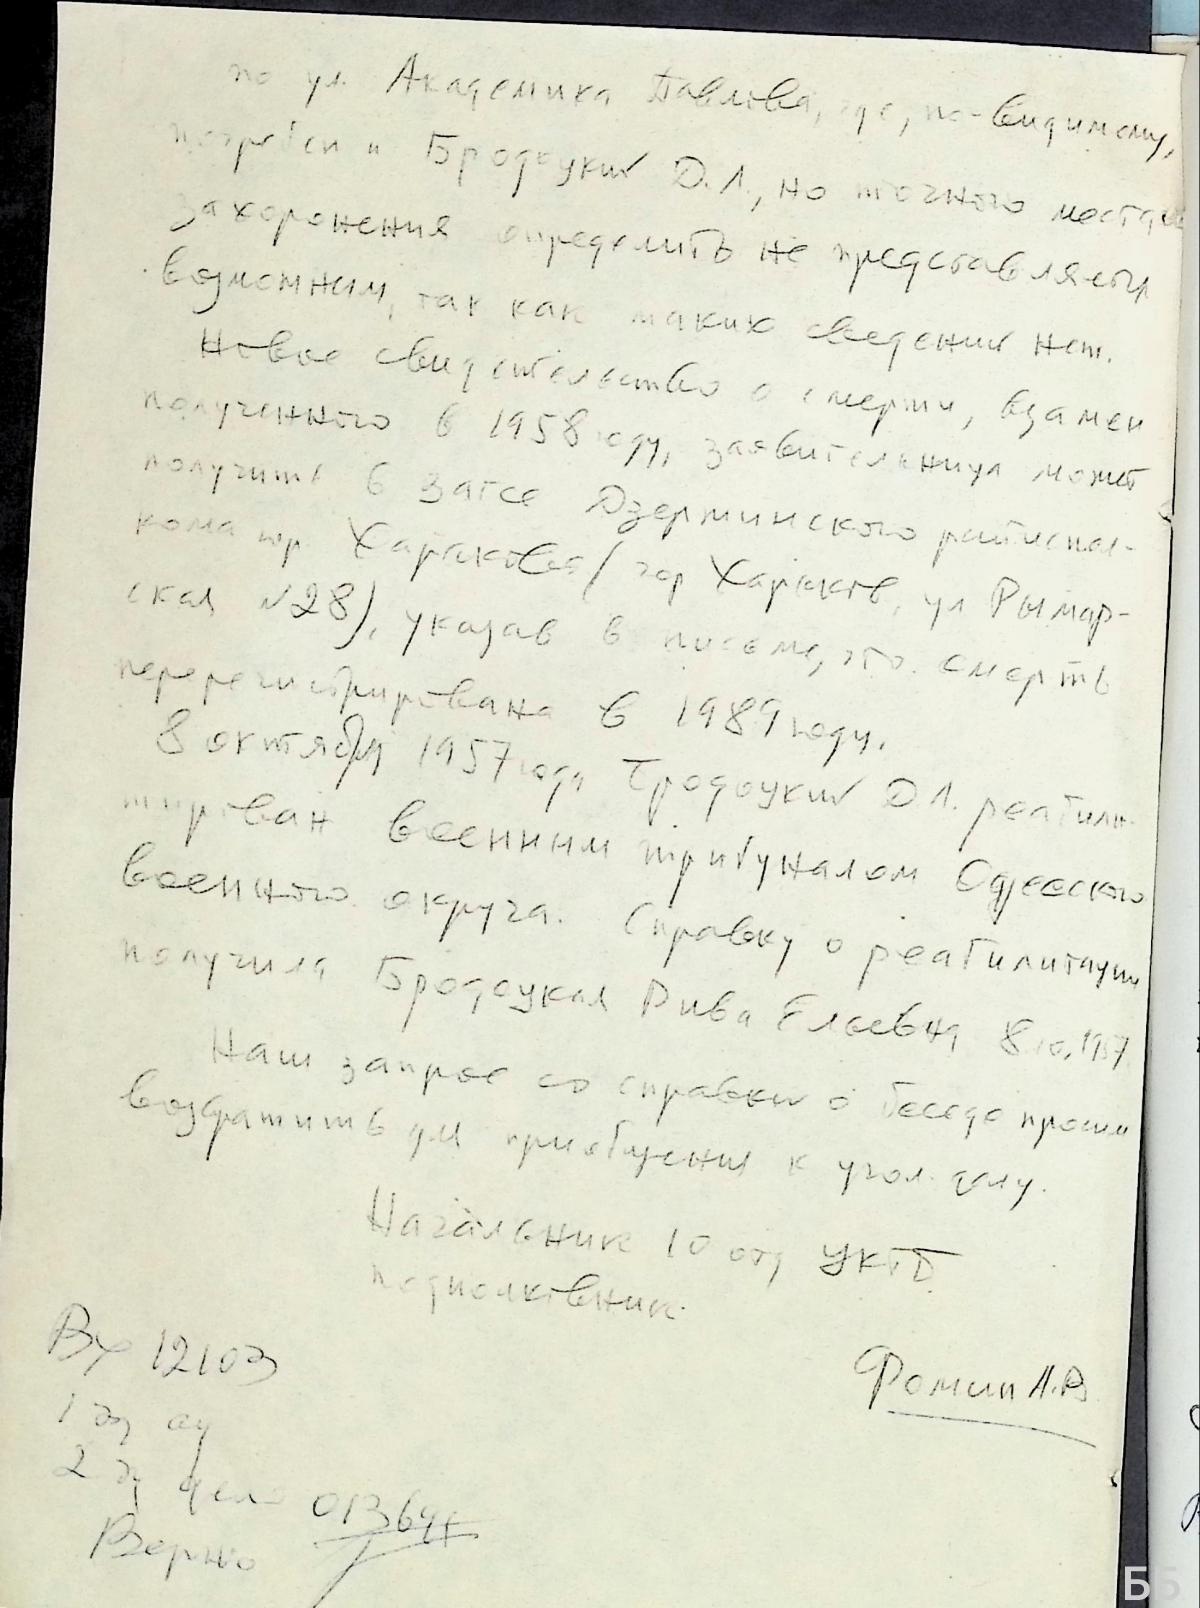 по ул. Академика Павлова, где, по-видимому,
погребен и Бродоцкий Д.Л., но точного места его
захоронения определить не представляется
возможным, так как таких сведений нет.
Новое свидетельство о смерти, взамен
полученного в 1958 году, заявительница может
получить в загсе Дзержинского райиспол-
кома гор. Харькова (гор Харьков, ул Рымар-
ская №28), указав в письме, что смерть
перерегистрирована в 1989 году.
8 октября 1957 года Бродоцкий Д.Л. реабили-
тирован военным трибуналом Одесского
военного округа. Справку о реабилитации
получила Бродоцкая Рива Ельевна 8.10.1957
Наш запрос со справкой о беседе просим
возвратить для приобщения к угол. делу.
Начальник 10 отд УКГБ
подполковник
Фомин А.В.
Вх 12103
1 экз ад
2 экз дело 013694
Верно
ББ